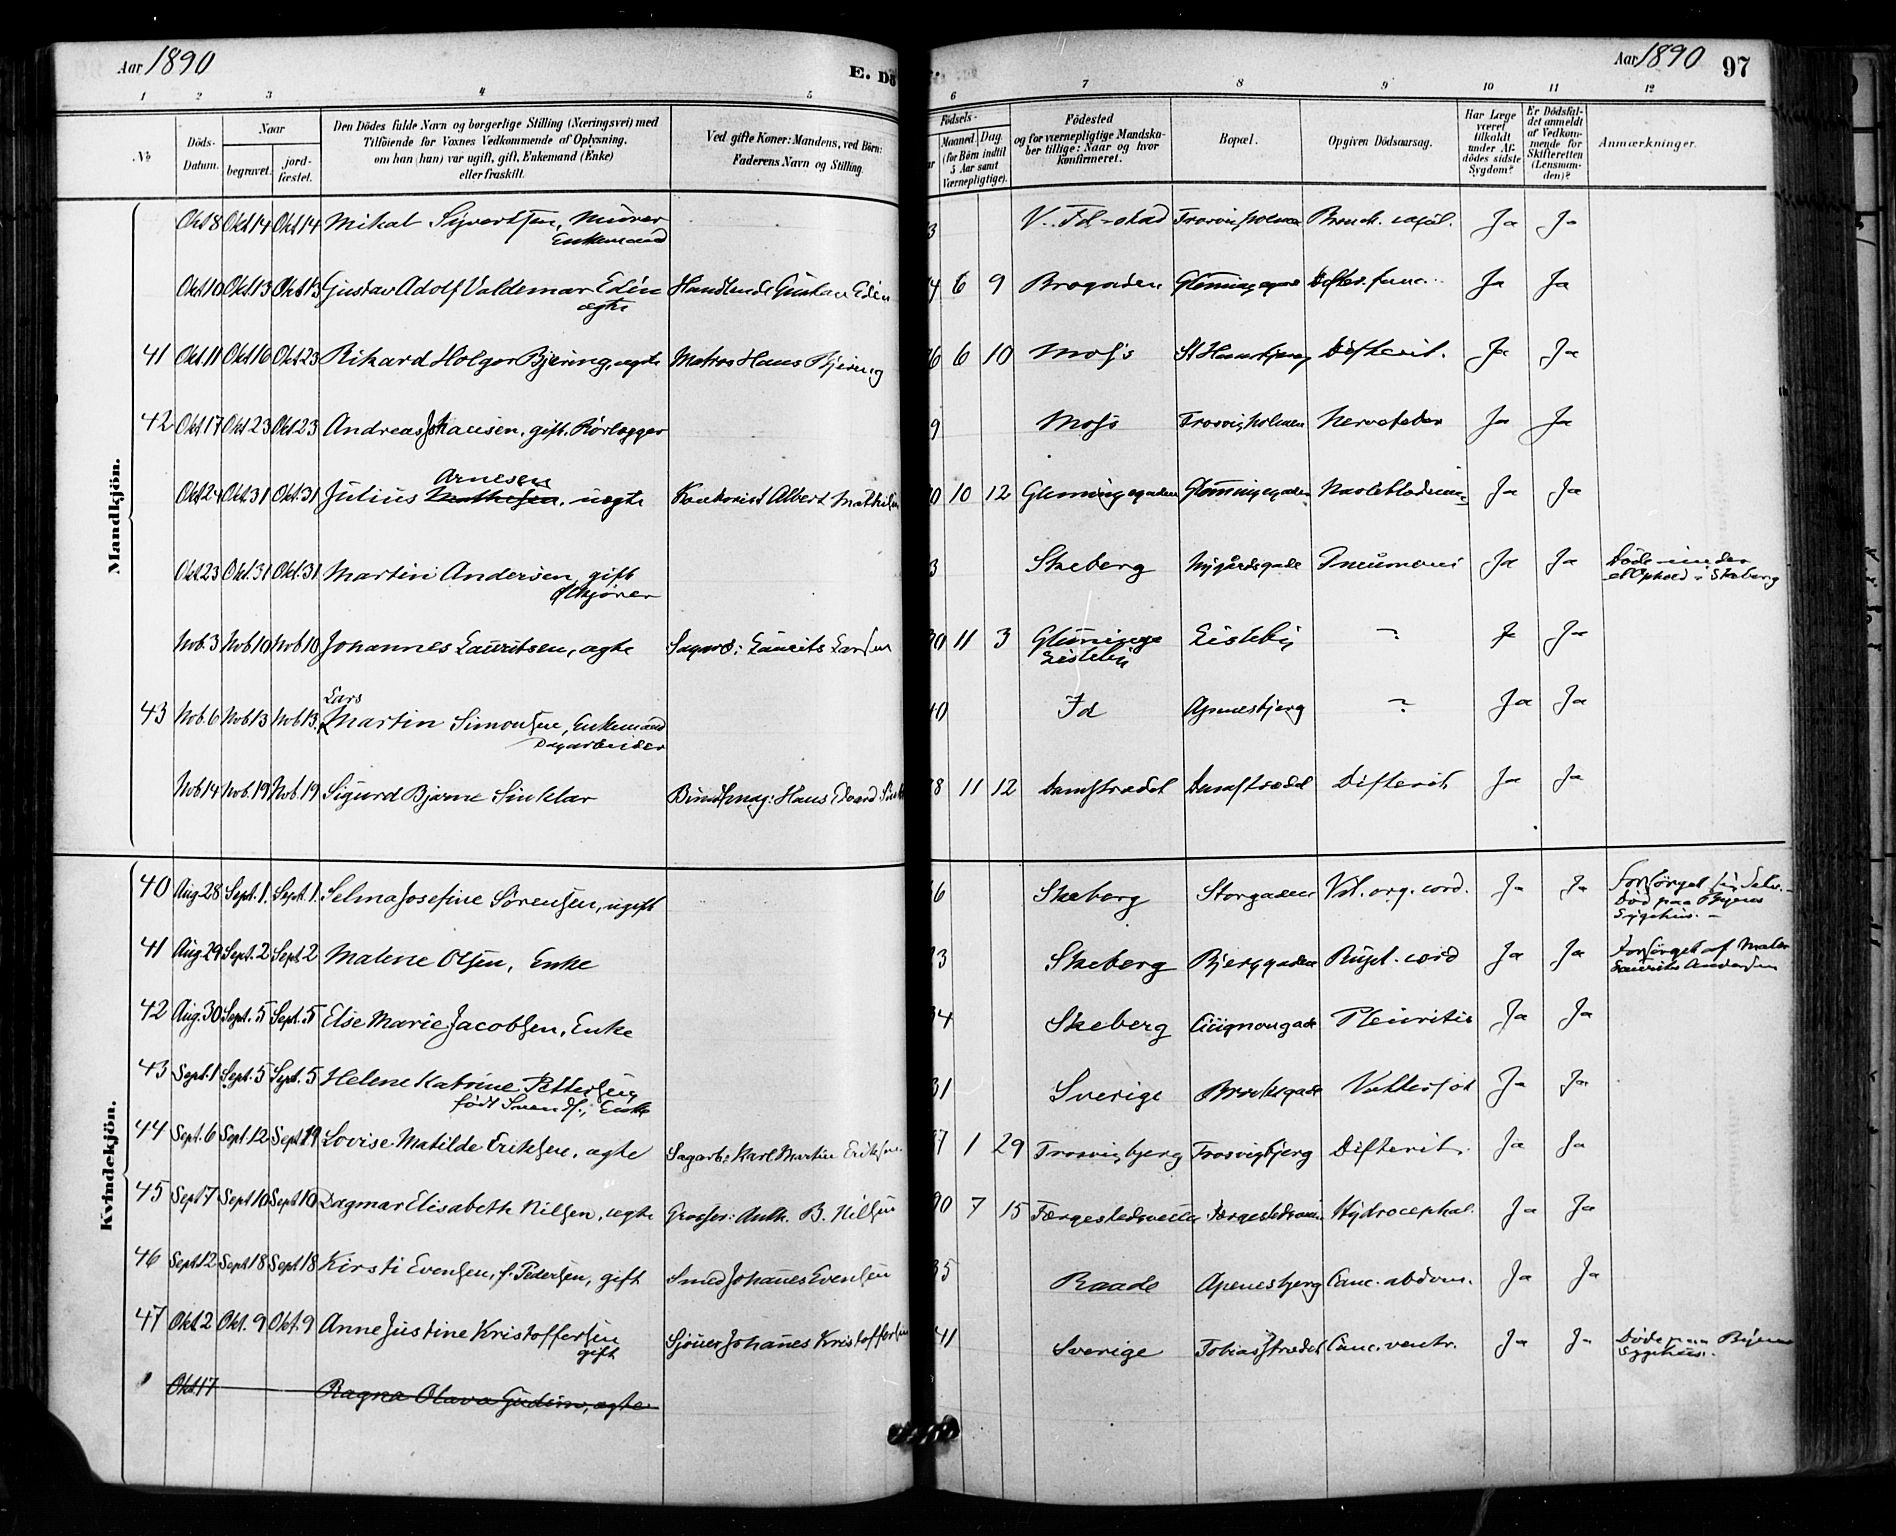 Aar 1890
E. Dö
Aar 1890 97
1 2 3 4 5 6 7 8 9 10 11 12
No
Döds-Datum.
Naar
begravet.
jord-fæstet.
Den Dödes fulde Navn og borgerlige Stilling (Næringsvei) med
Tilföiende for Voxnes Vedkommende af Oplysning,
om han (hun) var ugift, gift, Enkemand (Enke)
eller fraskilt.
Ved gifte Koner: Mandens, ved Börn:
Faderens Navn og Stilling.
Födsels-
Maaned. Dag.
(for Börn indtil
5 Aar samt
Værnepligtige).
Födested
og for værnepligtige Mandska-
ber tillige: Naar og hvor
konfirmeret.
Bopæl.
Opgiven Dödsaarsag.
Har Læge
været
tilkaldt
under Af-
dödes sidste
Sygdom?
Er Dödsfal-
det anmeldt
af Vedkom-
mende for
Skifteretten
(Lensman-
den)?
Anmærkninger.
Mandkjön.
Okt 8 Okt 14 Okt 14 Mikal Syvertsen, Murer 3 V. Fd-stad Trosvigholmen Bronch. capil. Ja Ja
Enkemand
Okt 10 Okt 13 Okt 13 Gustav Adolf Valdemar Edén Handlende Gustav Edén 4 6 9 Brogaden Glemmingegade Ja Ja
ægte
41 Okt 11 Okt 16 Okt 23 Rikard Holger Bjering, ægte Matros Hans Bjering 6 6 10 Moss St Hansbjerg Difterit. Ja Ja
42 Okt 17 Okt 23 Okt 23 Andreas Johansen, gift. Rörlægger 9 Moss Trosvigholmen Nervefeber Ja Ja
Arnesen
Okt 24 Okt 31 Okt. 31 Julius Mathesen, uægte Albert 0 10 12 Glemmingegaden Glemmingegaden Ja Ja
Okt 23 Okt. 31 Okt. 31 Martin Andersen, gift 3 Skeberg Nygårdsgade Pneumoni Ja Ja Döde under
et Ophold i Skeberg
Nob. 3 Nob 10 Nob 10 Johannes Lauritsen, ægte Laurits Larsen 90 11 3 Glemminge Lisleby ? Ja
Lisleby
Lars
43 Nob. 6 Nob 13 Nob 13. Martin Simonsen, Enkemand 40 Id Apenesbjerg ? Ja Ja
Dagarbeider
Nob. 14 Nob. 19 Nob. 19 Sigurd Bjarne Sinklar Hans Edvard 8 11 12 Damstrædet Damstrædet Difterit. Ja Ja
Kvindekjön.
40 Aug 28 Sept. 1. Sept. 1. Selma Josefine Sörensen, ugift 6 Skeberg Storgaden Vit. org. cord. Ja Ja Forsörget sig Selv.
Död paa Byens
Sygehus.
41 Aug 29 Sept. 2 Sept 2 Malene Olsen, Enke 3 Skeberg Bjerggaden Rupt. cord Ja Ja Forsörget af Maler
Laurits Andersen
42 Aug. 30 Sept. 5 Sept. 5 Else Marie Jacobsen, Enke 34 Skeberg Cicignongade Pleuritis Ja Ja
43 Sept. 1 Sept. 5 Sept. 5 Helene Katrine Pettersen 31 Sverige Brocksgade Vattersot Ja Ja
född Svends., Enke
44 Sept. 6 Sept. 12 Sept 19 Lovise Matilde Eriksen, ægte Sagarb: Karl Martin Eriksen 7 1 29 Trosvigbjerg Trosvigbjerg Difterit. Ja Ja
45 Sept 7 Sept 10 Sept 10 Dagmar Elisabeth Nilsen, ægte Grosser: Anth. B. Nilsen 90 7 15 Færgestedsveien Færgestedsveien Hydrocephal. Ja Ja
46 Sept 12 Sept 18 Sept 18 Kirsti Evensen, f. Pedersen, gift Smed Johanes Evensen 35 Raade Apenesbjerg Canc. abdom. Ja Ja
47 Okt 2 Okt. 9 Okt. 9 Anne Justine Kristoffersen Sjöner Johanes Kristoffersen 41 Sverige Tobiasstrædet Canc. ventr. Ja Ja Döde paa Byens
gift Sygehus.
Okt 17 Ragna Olava Gudim, ægte